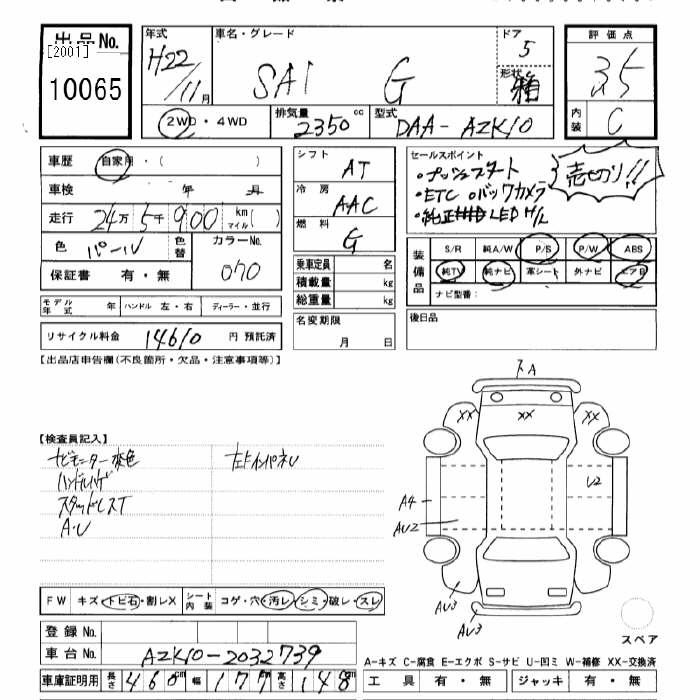 出品No. [2001] 10065
年式 H22/11月
車名・グレード SAI G
ドア 5
形状 箱
2WD・4WD
排気量 2350 cc
型式 DAA-AZK10
評価点 3.5
内装 C
車歴 自家用・( )
車検 年 月
走行 24万5千900 km マイル( )
色 パール 色替 カラーNo. 070
保証書 有・無
モデル年式 年 ハンドル 左・右 ディーラー・並行
リサイクル料金 14610 円 預託済
シフト AT
冷房 AAC
燃料 G
乗車定員 名
積載量 kg
総重量 kg
名変期限 月 日
セールスポイント
・プッシュスタート
・ETC ・バックカメラ
・純正 LED H/L
売切り!!
装備品 S/R 純A/W P/S P/W ABS
純TV 純ナビ 革シート 外ナビ エアB
ナビ型番:
後日品
【出品店申告欄(不良箇所・欠品・注意事項等)】
【検査員記入】
ナビモニター変色
ハンドルハゲ
スタッドレスT
A・U
左ドインパネU
FW キズ・トビ石・割レX シート内装 コゲ・穴・汚レ・シミ・破レ・スレ
登録No.
車台No. AZK10-2032739
車庫証明用 長さ 460cm 幅 177cm 高さ 148cm
A
XX XX XX
U2
A4
AU2
AU3
AU3
スペア
A-キズ C-腐食 E-エクボ S-サビ U-凹ミ W-補修 XX-交換済
工具 有・無 ジャッキ 有・無